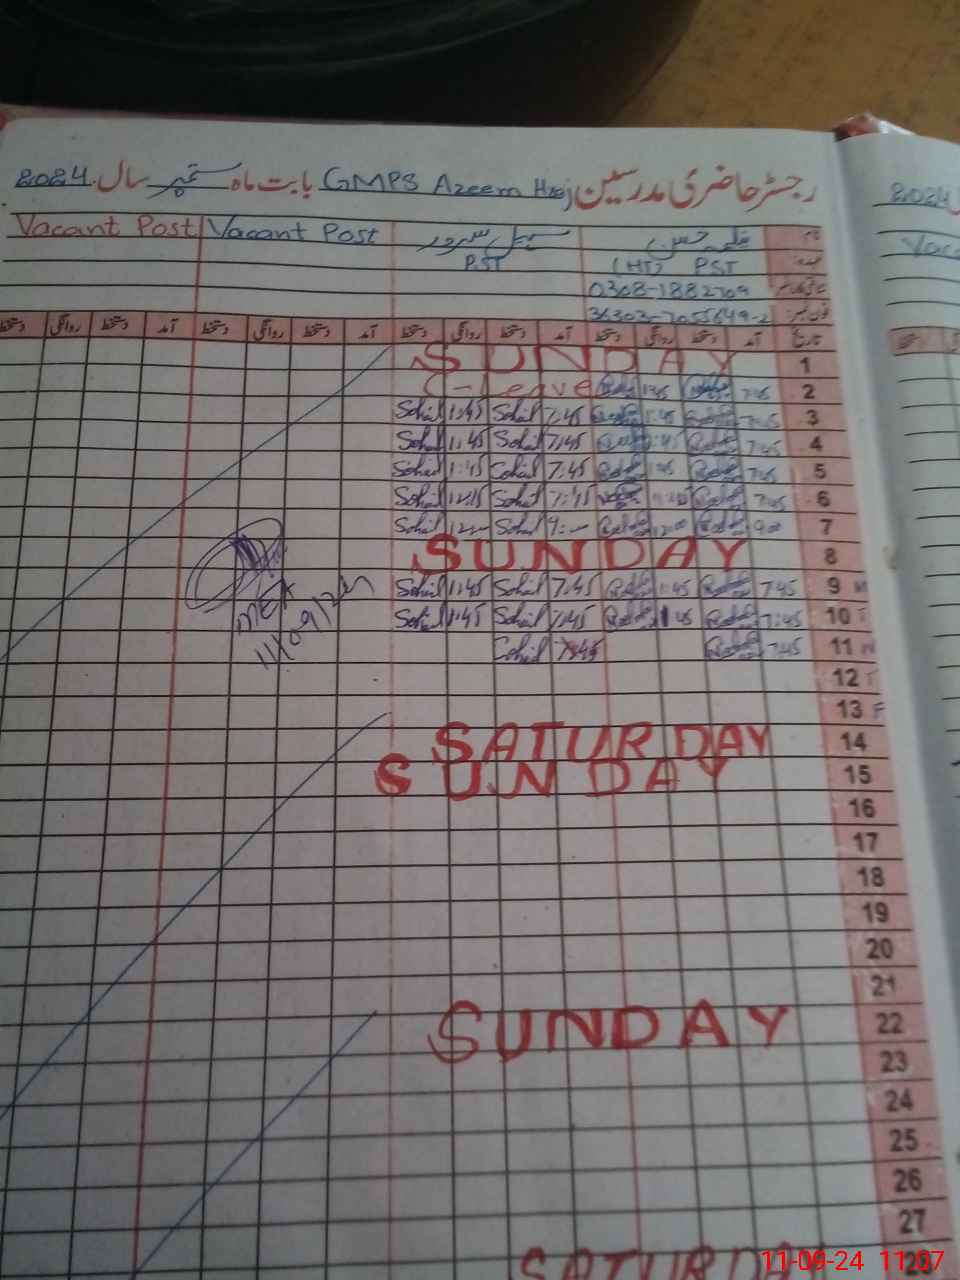 رجسٹر حاضری مدرسین GMPS Azeem Haoj بابت ماہ ستمبر سال 2024
Vacant Post Vacant Post سہیل سرور
PST (HT) PST
0308-1882709
36303-7055649-2
تاریخ آمد دستخط روانگی دستخط آمد دستخط روانگی دستخط آمد دستخط روانگی دستخط آمد دستخط روانگی دستخط
SUNDAY 1
C-Leave 1:45 7:45 2
Sohail 1:45 Sohail 7:45 1:45 7:45 3
Sohail 1:45 Sohail 7:45 1:45 7:45 4
Sohail 1:45 Sohail 7:45 1:45 7:45 5
Sohail 12:15 Sohail 7:45 12:15 7:45 6
Sohail 12:00 Sohail 9:00 12:00 9:00 7
SUNDAY 8
Sohail 1:45 Sohail 7:45 1:45 7:45 9 M
Sohail 1:45 Sohail 7:45 1:45 7:45 10 T
Sohail 7:45 7:45 11 W
MEA
11/09/24
12 T
13 F
SATURDAY 14
SUNDAY 15
16
17
18
19
20
21
SUNDAY 22
23
24
25
26
27
SATURDAY 28
2024
11-09-24 11:07